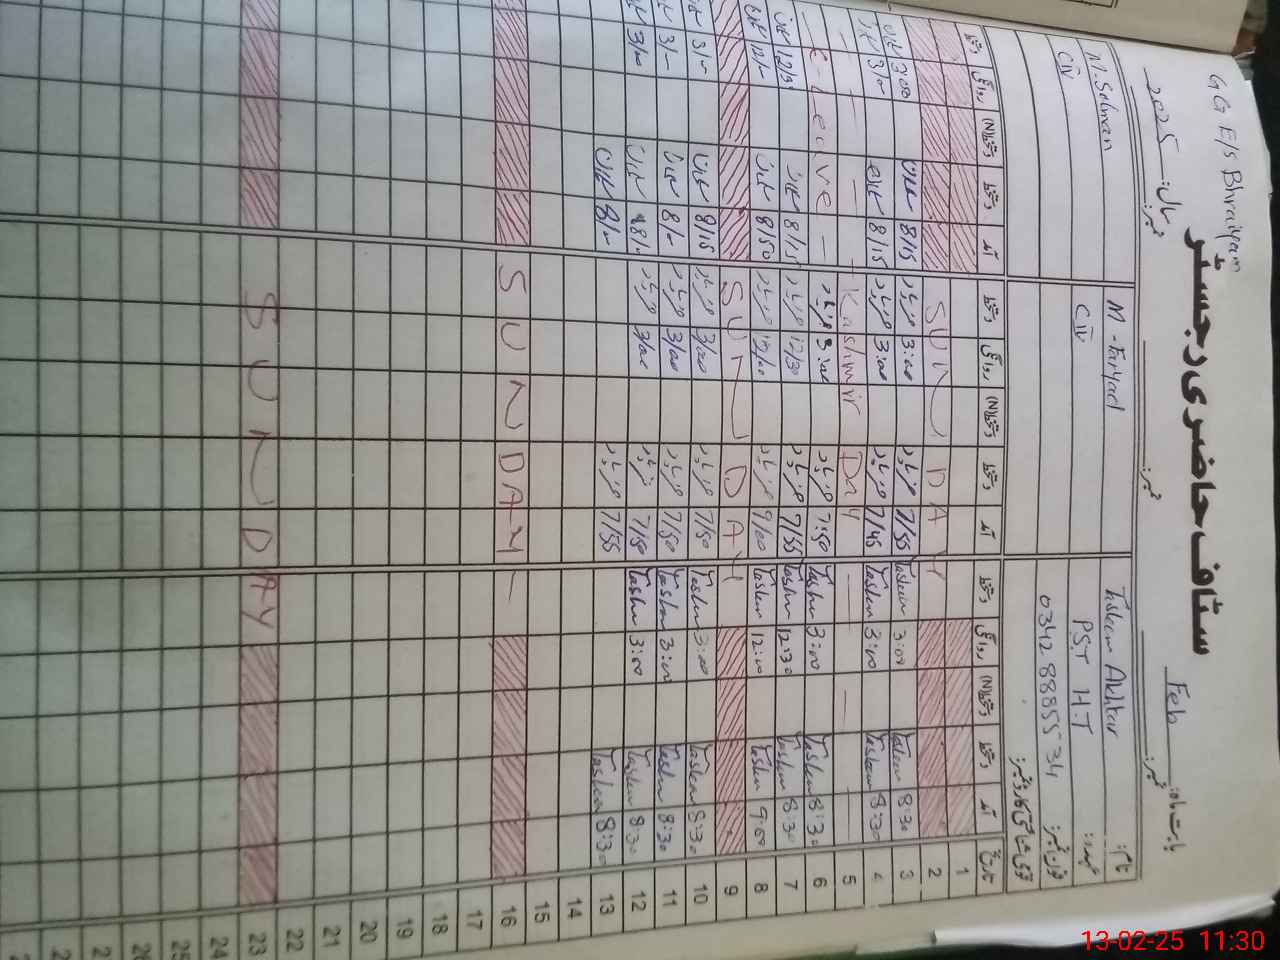 GG E/S Bhraiyam
سٹاف حاضری رجسٹر
بابت ماہ: Feb
سال: 2025
نام: Tasleem Akhtar
M - Faryad
M. Salman
عہدہ: PST H.T
CIV
CIV
فون نمبر: 0342 8885534
قومی شناختی کارڈ نمبر:
تاریخ آمد دستخط وقفہ(N) روانگی دستخط آمد دستخط وقفہ(N) روانگی دستخط آمد دستخط وقفہ(N) روانگی دستخط
1
2 SUN DAY
3 8:30 Tasleem 3:00 Tasleem 7/55 3:00 8/15 3:00
4 8:30 Tasleem 3:00 Tasleem 7/45 3:00 8/15
5 Kashmir Day
6 8:30 Taslem 3:00 Taslem 7:50 3:00 Leave
7 8:30 Taslem 12:30 Taslem 7/55 12/30 8/15 12/30
8 9:00 Taslem 12:00 Taslem 9/00 12/00 8/50 12/-
9 SUN DAY
10 8:30 Taslem 3:00 Taslem 7/50 3/00 8/15 3/-
11 8:30 Taslem 3:00 Taslem 7/50 3/00 8/- 3/-
12 8:30 Taslem 3:00 Taslem 7/50 3/00 8/- 3/00
13 8:30 Taslem 7/55 8/-
14
15
16 SUNDAY
17
18
19
20
21
22
23 SUNDAY
24
25
26
13-02-25 11:30